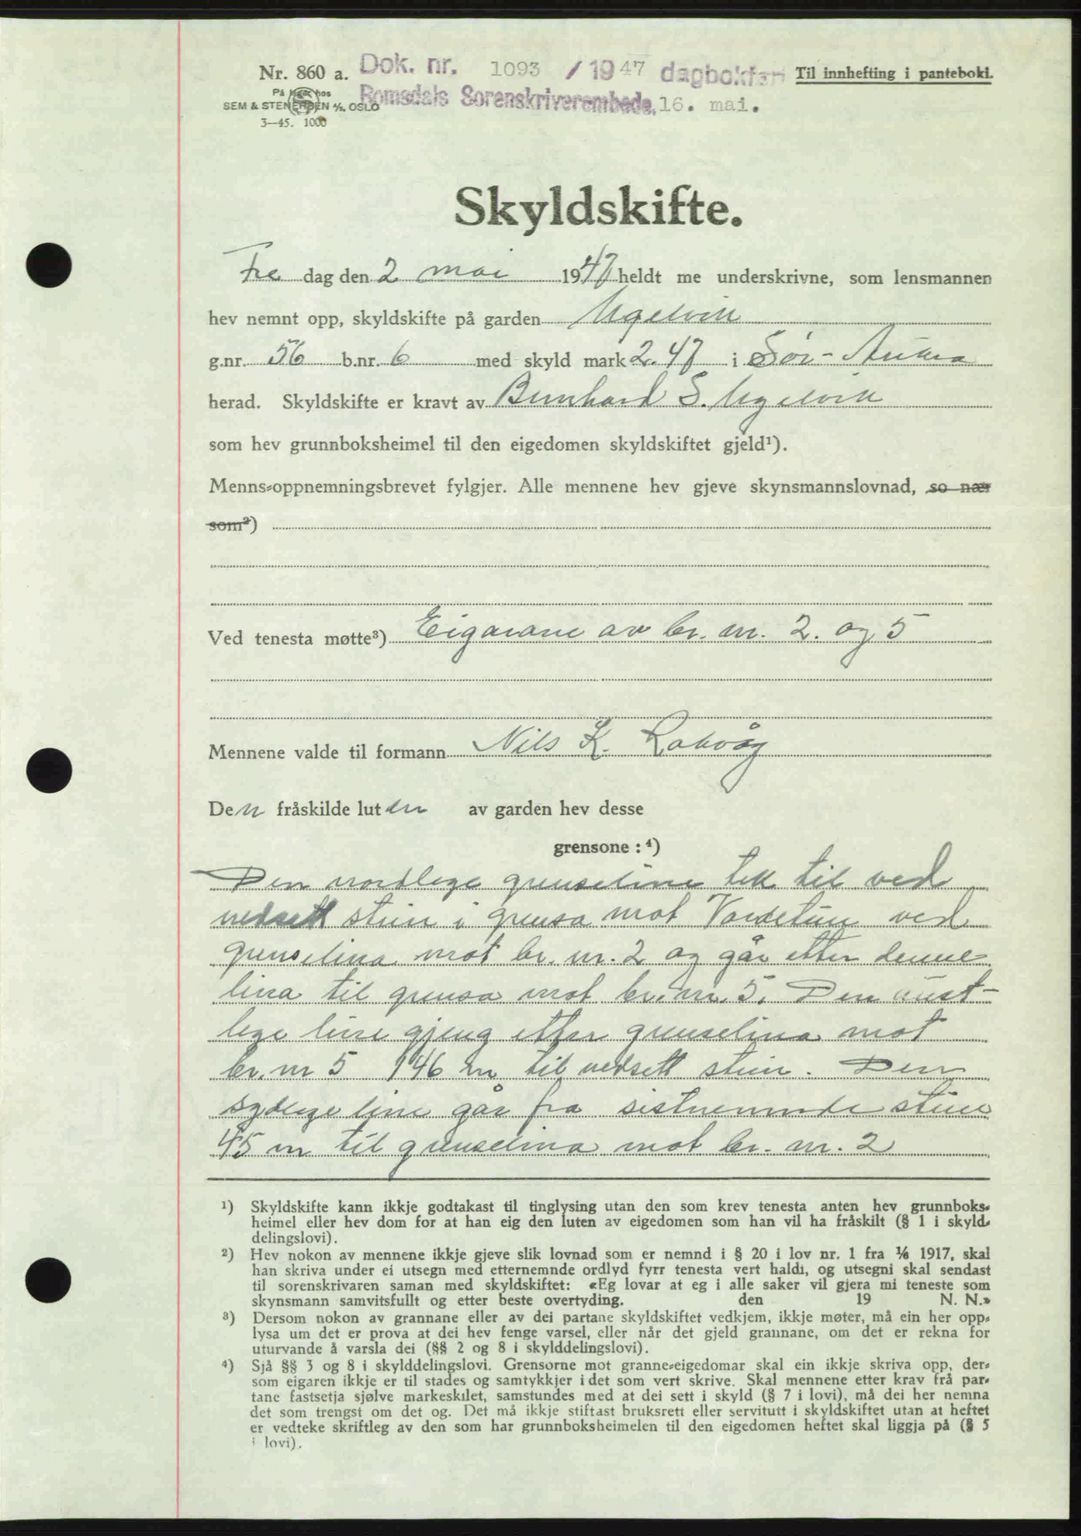 Nr. 860 a. Dok. nr. 1093 / 1947 dagbokført Til innhefting i panteboki.
På lager hos Romsdals Sorenskriverembede, 16. mai.
SEM & STENERSEN A/S. OSLO
3—45. 1000
Skyldskifte.
Fre dag den 2 mai 1947 heldt me underskrivne, som lensmannen
hev nemnt opp, skyldskifte på garden Ugelvik
g.nr. 56 b.nr. 6 med skyld mark 2.47 i Sør-Aukra
herad. Skyldskifte er kravt av Bernhard S. Ugelvik
som hev grunnboksheimel til den eigedomen skyldskiftet gjeld¹).
Menns-oppnemningsbrevet fylgjer. Alle mennene hev gjeve skynsmannslovnad, so nær
som²)
Ved tenesta møtte³) Eigarane av br. nr. 2. og 5
Mennene valde til formann Nils K. Rakvåg
Den fråskilde luten av garden hev desse
grensone : ⁴)
Den nordlege grenselina tek til ved
nedsett stein i grensa mot Vardetun ved
grenselina mot br. nr. 2 og går etter denne
lina til grensa mot br. nr. 5. Den aust-
lege line gjeng etter grenselina mot
br. nr 5 146 m til nedsett stein. Den
sydlege line går fra sistnemnde stein
45 m til grenselina mot br. nr. 2
¹) Skyldskifte kann ikkje godtakast til tinglysing utan den som krev tenesta anten hev grunnboks-
heimel eller hev dom for at han eig den luten av eigedomen som han vil ha fråskilt (§ 1 i skyld-
delingslovi).
²) Hev nokon av mennene ikkje gjeve slik lovnad som er nemnd i § 20 i lov nr. 1 fra 1/6 1917, skal
han skriva under ei utsegn med etternemnde ordlyd fyrr tenesta vert haldi, og utsegni skal sendast
til sorenskrivaren saman med skyldskiftet: «Eg lovar at eg i alle saker vil gjera mi teneste som
skynsmann samvitsfullt og etter beste overtyding. den 19 N. N.»
³) Dersom nokon av grannane eller av dei partane skyldskiftet vedkjem, ikkje møter, må ein her opp-
lysa um det er prova at dei hev fenge varsel, eller når det gjeld grannane, om det er rekna for
uturvande å varsla dei (§§ 2 og 8 i skylddelingslovi).
⁴) Sjå §§ 3 og 8 i skylddelingslovi. Grensorne mot granne-eigedomar skal ein ikkje skriva opp, der-
som eigaren ikkje er til stades og samtykkjer i det som vert skrive. Skal mennene etter krav frå par-
tane fastsetja sjølve markeskilet, samstundes med at dei sett i skyld (§ 7 i lovi), må dei her nemna
det som trengst om det og. Det må ikkje stiftast bruksrett eller servitutt i skyldskiftet utan at heftet
er vedteke skriftleg av den som har grunnboksheimelen til den eigedomen heftet skal liggja på (§ 5
i lovi).